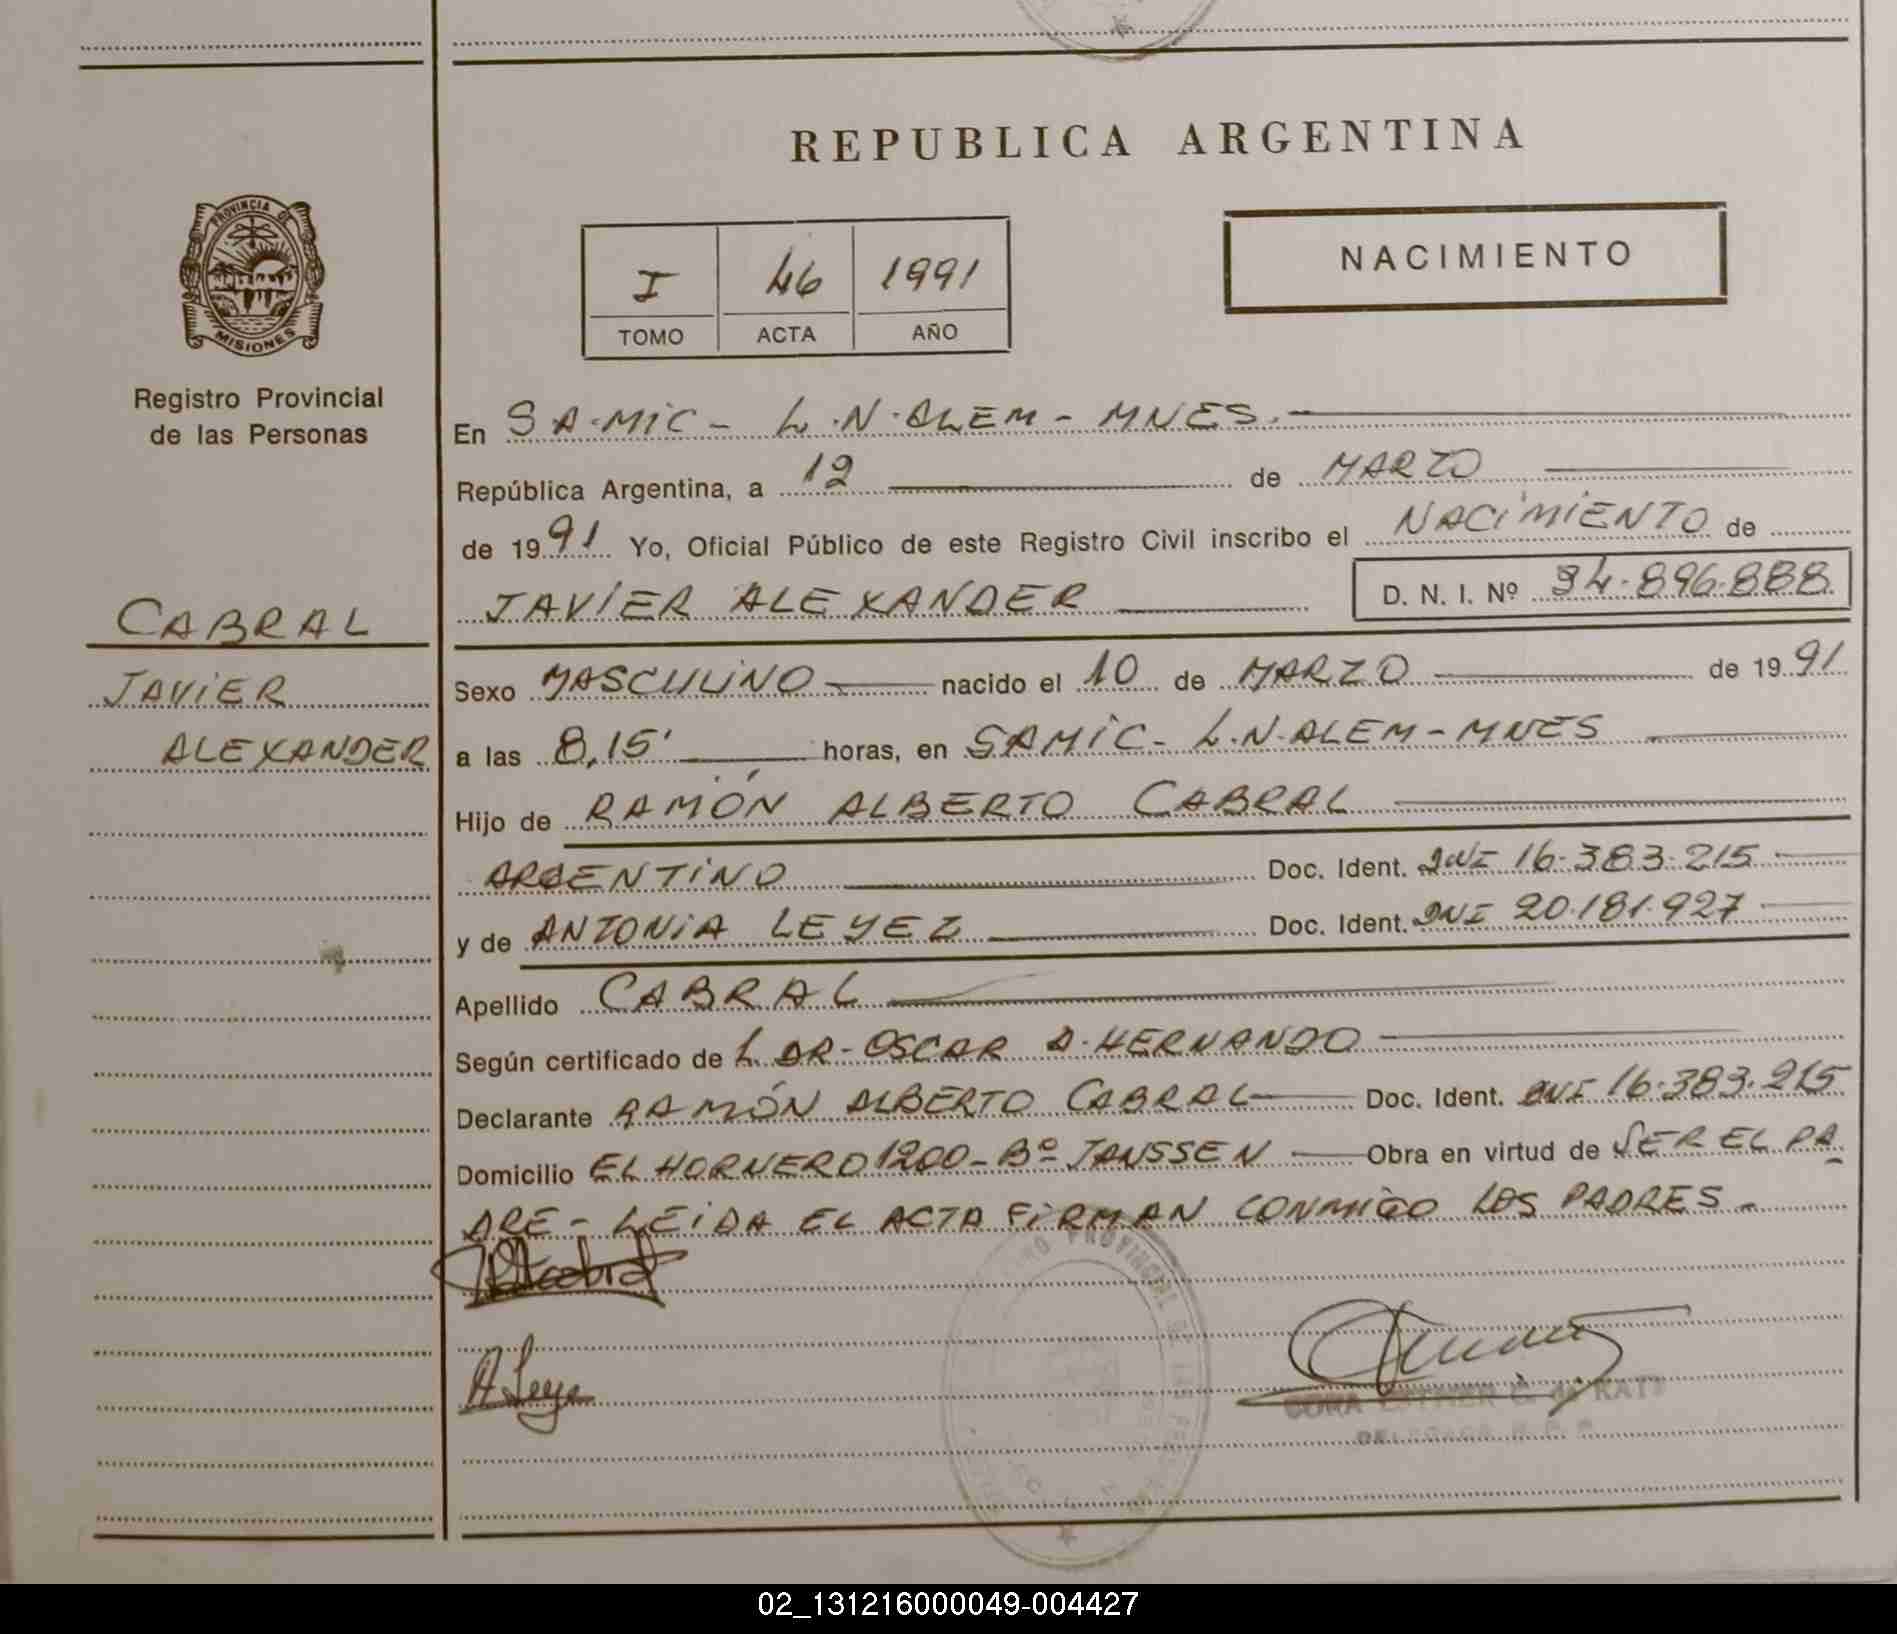 REPUBLICA ARGENTINA
PROVINCIA DE
MISIONES
Registro Provincial
de las Personas
I 46 1991
TOMO ACTA AÑO
NACIMIENTO
CABRAL
JAVIER
ALEXANDER
En SA.MIC - L.N.ALEM - MNES.
República Argentina, a 12 de MARZO
de 1991 Yo, Oficial Público de este Registro Civil inscribo el NACIMIENTO de
JAVIER ALEXANDER D. N. I. Nº 34.896.888
Sexo MASCULINO nacido el 10 de MARZO de 1991
a las 8,15' horas, en SAMIC - L.N.ALEM - MNES
Hijo de RAMÓN ALBERTO CABRAL
ARGENTINO Doc. Ident. DNI 16.383.215
y de ANTONIA LEYEZ Doc. Ident. DNI 20.181.927
Apellido CABRAL
Según certificado de L. DR - OSCAR A. HERNANDO
Declarante RAMÓN ALBERTO CABRAL Doc. Ident. DNI 16.383.215
Domicilio EL HORNERO 1200 - Bº JANSSEN Obra en virtud de SER EL PA
DRE - LEIDA EL ACTA FIRMAN CONMIGO LOS PADRES.
PROVINCIAL DE LAS
02_131216000049-004427